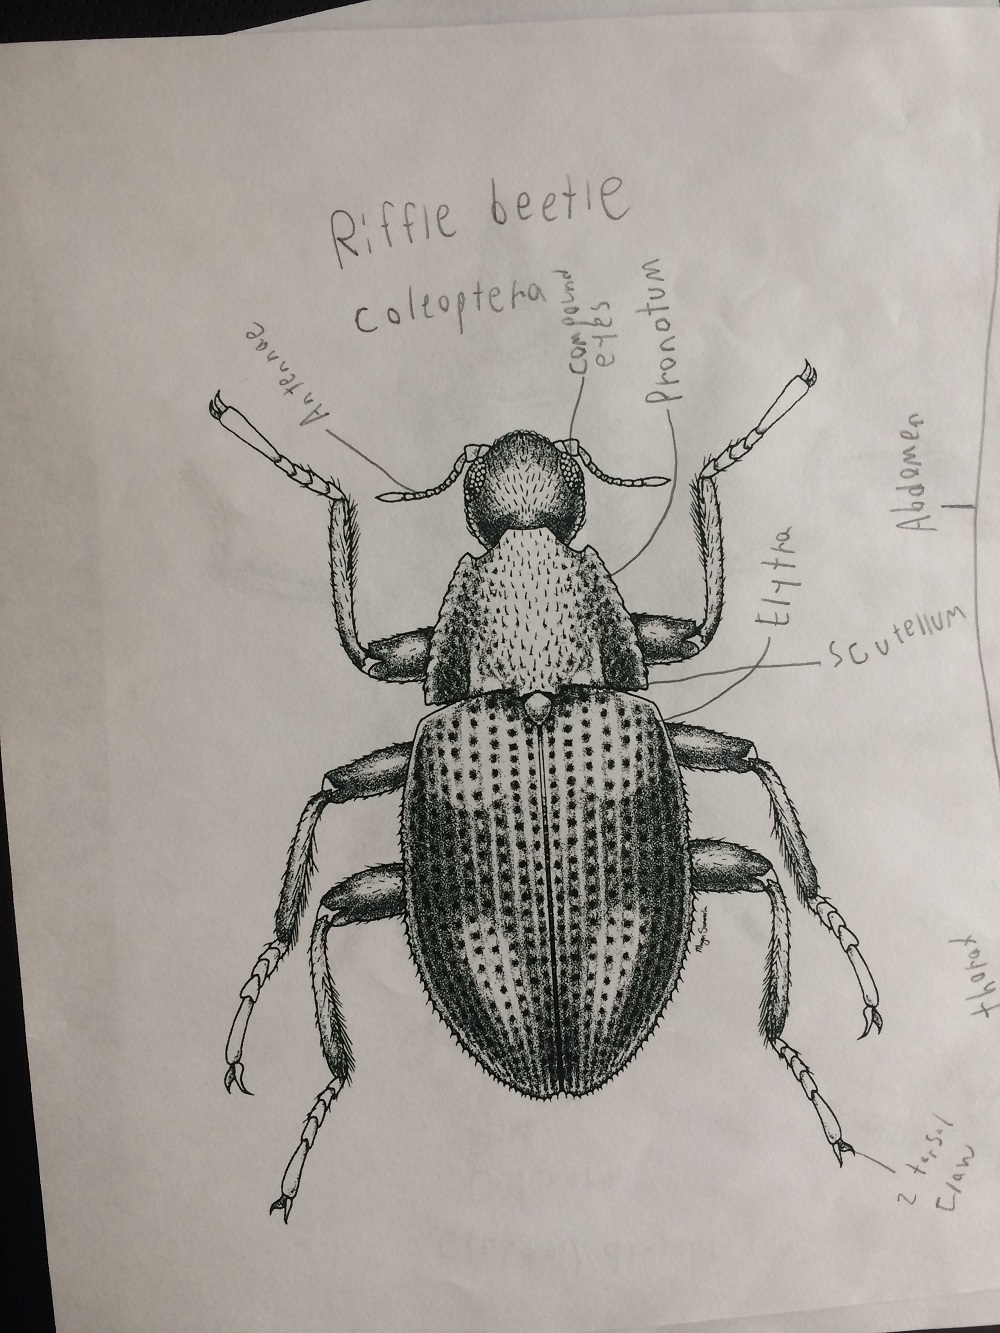 Riffle beetle
coleoptera
Antennae
compound
eyes
Pronotum
Abdomen
Elytra
Scutellum
thorax
2 tersal
Claw